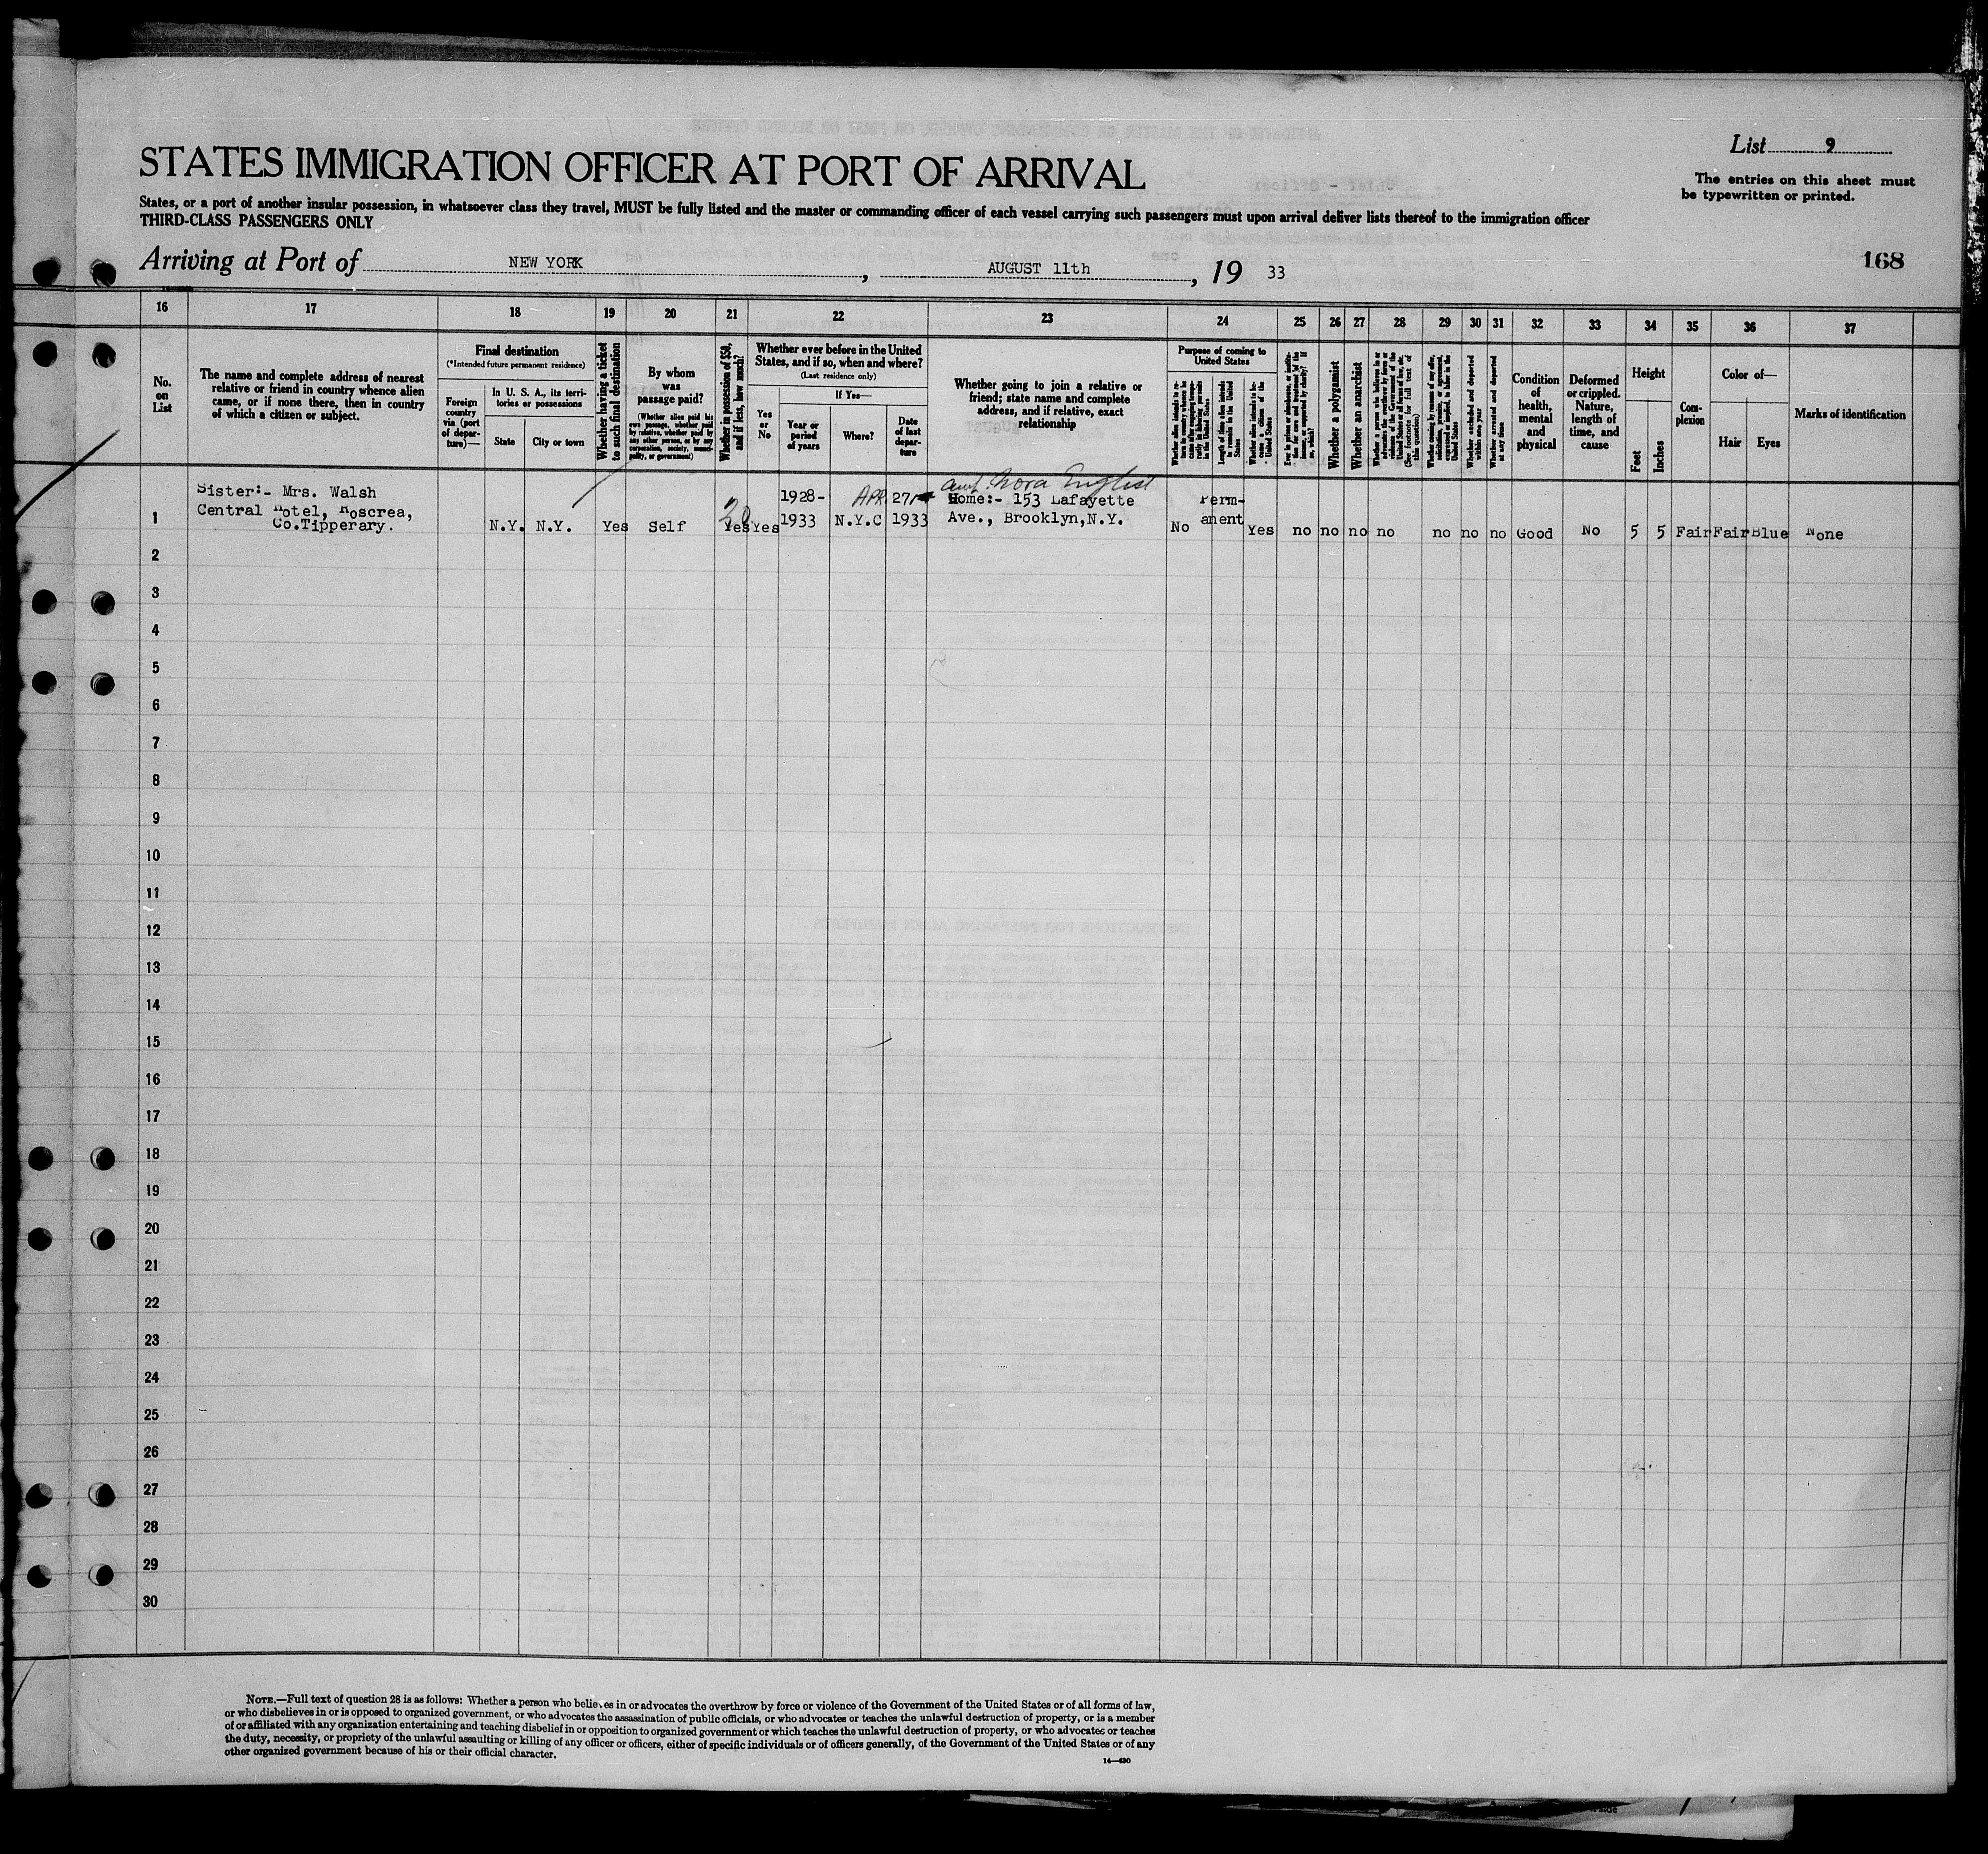 List 9
The entries on this sheet must
be typewritten or printed.
STATES IMMIGRATION OFFICER AT PORT OF ARRIVAL
States, or a port of another insular possession, in whatsoever class they travel, MUST be fully listed and the master or commanding officer of each vessel carrying such passengers must upon arrival deliver lists thereof to the immigration officer
THIRD-CLASS PASSENGERS ONLY
Arriving at Port of NEW YORK, AUGUST 11th, 19 33
168
16 17 18 19 20 21 22 23 24 25 26 27 28 29 30 31 32 33 34 35 36 37
No.
on
List
The name and complete address of nearest
relative or friend in country whence alien
came, or if none there, then in country
of which a citizen or subject.
Final destination
(*Intended future permanent residence)
Foreign
country
via (port
of depar-
ture)—
In U. S. A., its terri-
tories or possessions
State
City or town
Whether having a ticket
to such final destination
By whom
was
passage paid?
(Whether alien paid his
own passage, whether paid
by relative, whether paid by
any other person, or by any
corporation, society, munici-
pality, or government)
Whether in possession of $50,
and if less, how much?
Whether ever before in the United
States, and if so, when and where?
(Last residence only)
Yes
or
No
If Yes—
Year or
period
of years
Where?
Date
of last
depar-
ture
Whether going to join a relative or
friend; state name and complete
address, and if relative, exact
relationship
Purpose of coming to
United States
Whether alien intends to re-
turn to country whence he
came after engaging tempo-
rarily in laboring pursuits
in the United States
Length of time alien intends
to remain in the United
States
Whether alien intends to be-
come a citizen of the
United States
Ever in prison or almshouse, or institu-
tion for care and treatment of the
insane, or supported by charity? If
so, which?
Whether a polygamist
Whether an anarchist
Whether a person who believes in or
advocates the overthrow by force or
violence of the Government of the
United States or all forms of law, etc.
(See footnote for full text of
this question)
Whether coming by reason of any offer,
solicitation, promise, or agreement,
expressed or implied, to labor in the
United States
Whether excluded and deported
within one year
Whether arrested and deported
at any time
Condition
of
health,
mental
and
physical
Deformed
or crippled.
Nature,
length of
time, and
cause
Height
Feet
Inches
Com-
plexion
Color of—
Hair
Eyes
Marks of identification
Sister:- Mrs. Walsh
Central Hotel, Roscrea,
Co.Tipperary.
1
N.Y. N.Y. Yes Self
20
Yes Yes
1928-
1933
N.Y.C
APR 27
1933
aunt. Nora English
Home:- 153 Lafayette
Ave., Brooklyn,N.Y.
No
Perm-
anent
Yes no no no no no no no Good No 5 5 Fair Fair Blue None
2
3
4
5
6
7
8
9
10
11
12
13
14
15
16
17
18
19
20
21
22
23
24
25
26
27
28
29
30
NOTE.—Full text of question 28 is as follows: Whether a person who believes in or advocates the overthrow by force or violence of the Government of the United States or of all forms of law,
or who disbelieves in or is opposed to organized government, or who advocates the assassination of public officials, or who advocates or teaches the unlawful destruction of property, or is a member
of or affiliated with any organization entertaining and teaching disbelief in or opposition to organized government or which teaches the unlawful destruction of property, or who advocates or teaches
the duty, necessity, or propriety of the unlawful assaulting or killing of any officer or officers, either of specific individuals or of officers generally, of the Government of the United States or of any
other organized government because of his or their official character.
14—430